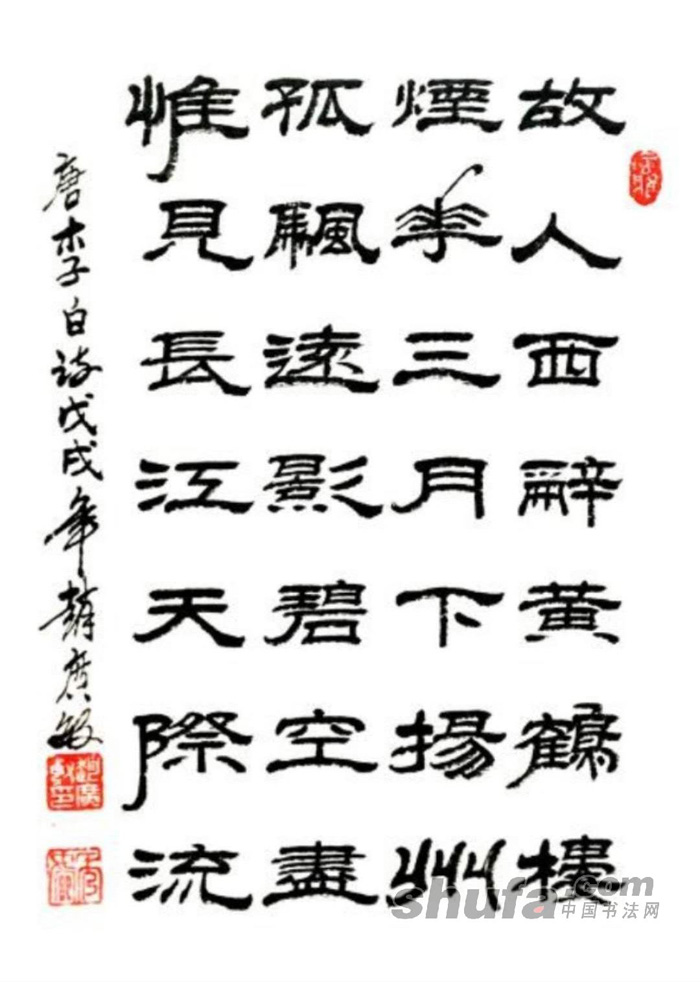 故人西辭黄鶴樓
煙華三月下揚州
孤颿遠影碧空盡
惟見長江天際流
唐李白詩戊戌年趙廣敏
shufa.com
中国书法网